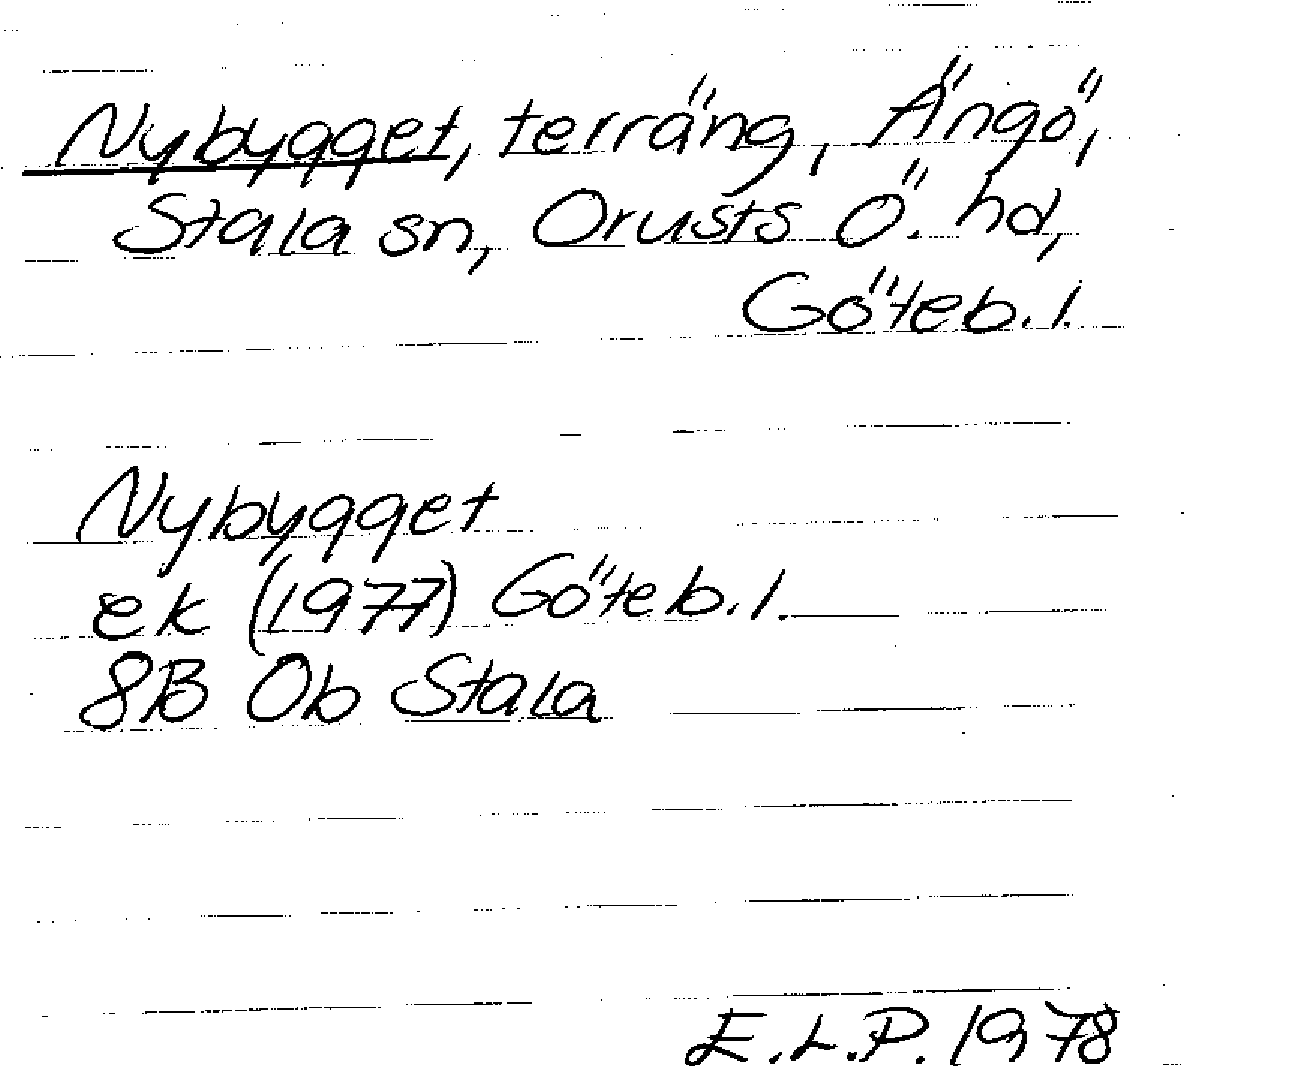 Nybygget, terräng, Ängö,
Stala sn, Orusts Ö. hd,
Göteb. l.
Nybygget
ek (1977) Göteb. l.
8B 0b Stala
E.L.P. 1978